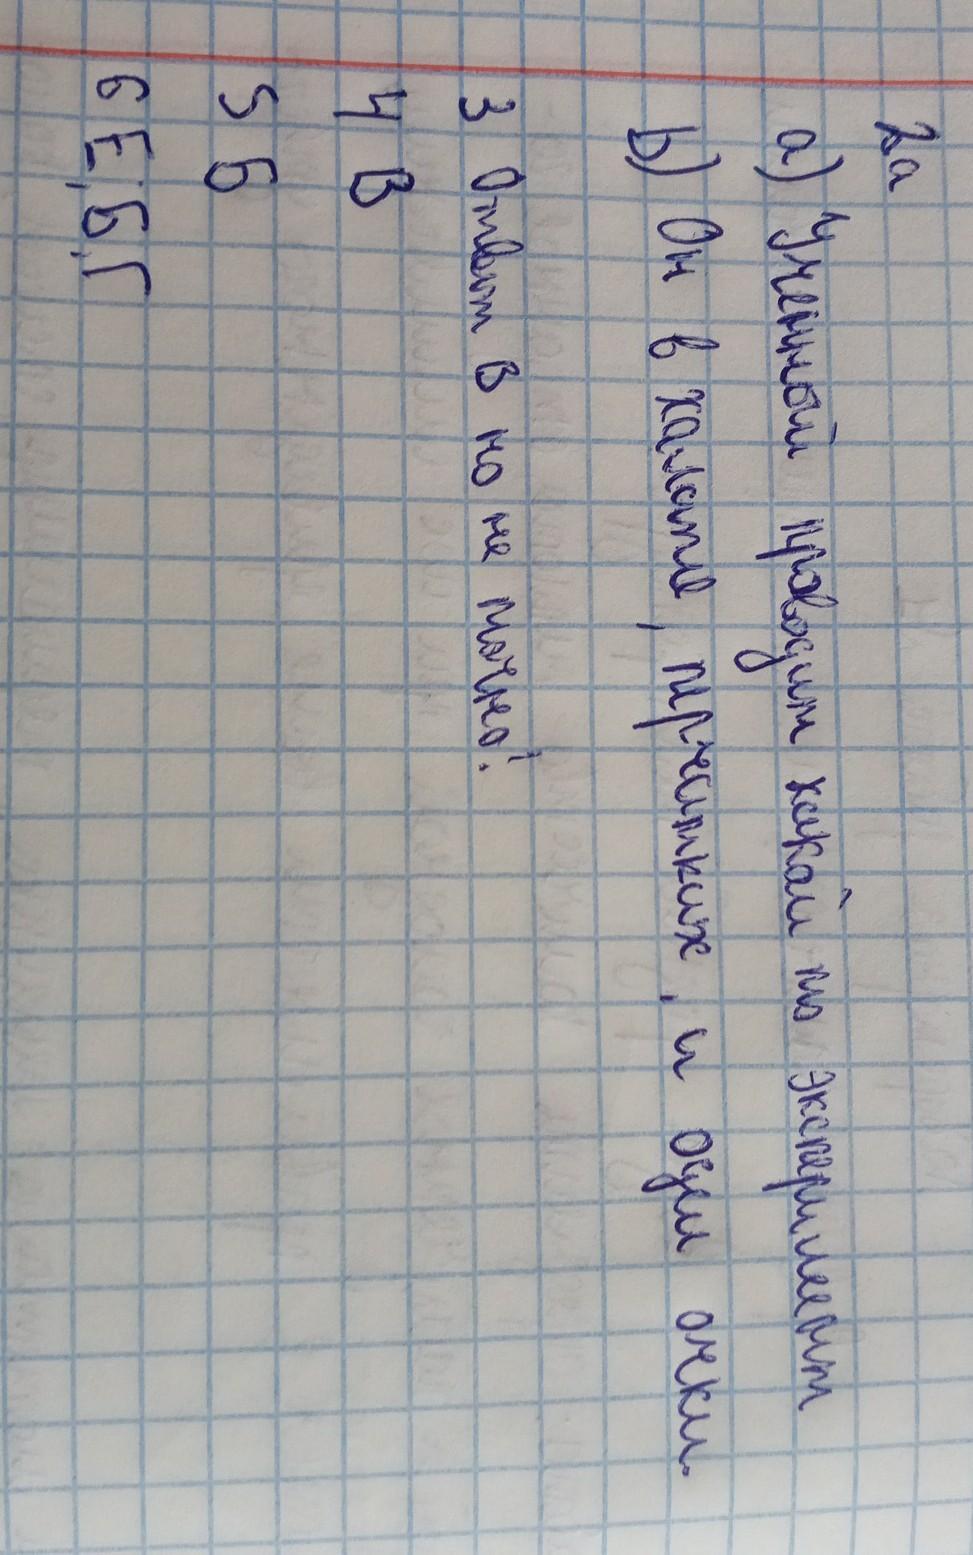 2а
а) Ученный проводит какой то эксперимент
b) Он в халате, перчатких, и одел очки.
3 Ответ В но не точно!
4 В
5 Б
6 Е, Б, Г